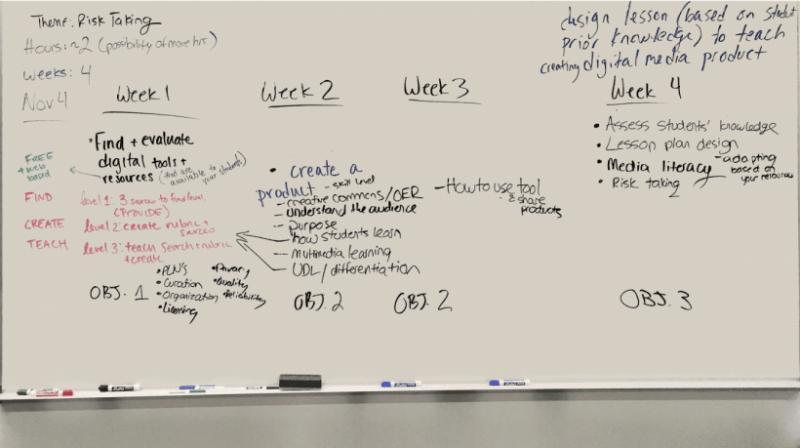 Theme: Risk Taking
Hours: ~2 (possibility of more hrs)
Weeks: 4
Nov 4
design lesson (based on student
prior knowledge) to teach
creating digital media product
Week 1
• Find + evaluate
digital tools +
resources (that are
available to
your students)
FREE
+ web
based
FIND
level 1: 3 sources to find level
(PROVIDE)
CREATE
level 2: create rubric +
sources
TEACH
level 3: teach search + rubric
+ create
OBJ. 1
• PLN's
• Curation
• Organization
• Licensing
• Privacy
• Quality
• Reliability
Week 2
• create a
product - skill level
- creative commons/OER
- understand the audience
- purpose
- how students learn
- multimedia learning
- UDL/differentiation
OBJ. 2
Week 3
- How to use tool
& share
products
OBJ. 2
Week 4
• Assess students' knowledge
• Lesson plan design
• Media literacy
- adapting
based on
your resources
• Risk taking
OBJ. 3